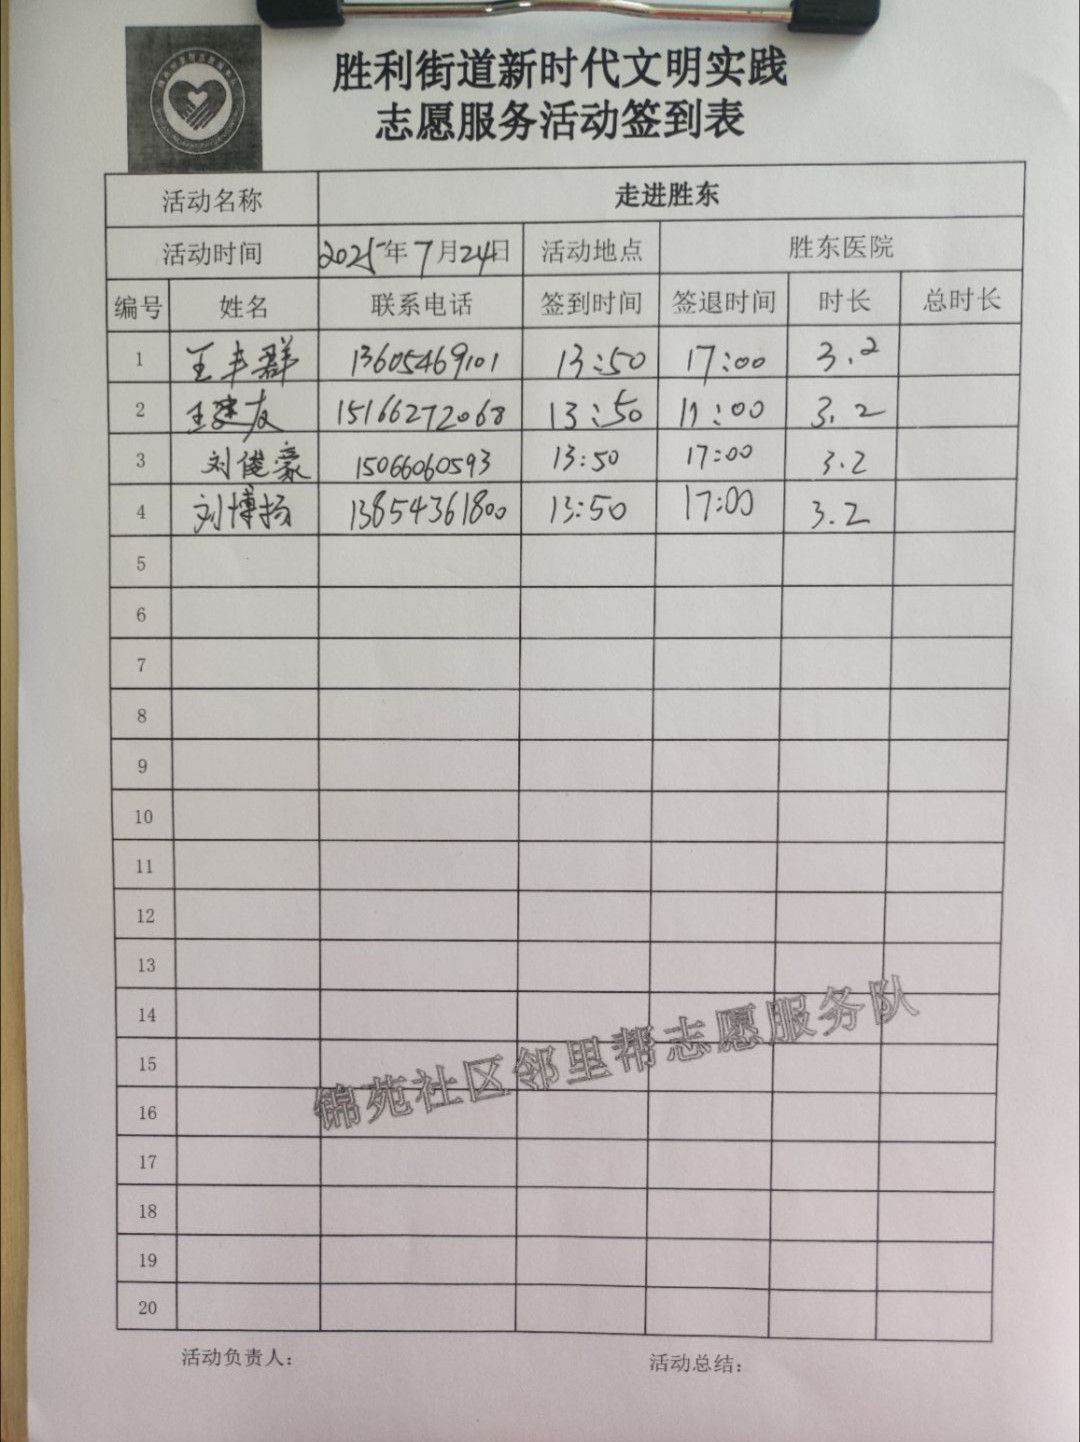 胜利街道新时代文明实践
志愿服务活动签到表
活动名称 走进胜东
活动时间 2025年7月24日 活动地点 胜东医院
编号 姓名 联系电话 签到时间 签退时间 时长 总时长
1 王丰群 13605469101 13:50 17:00 3.2
2 王建友 15166272068 13:50 17:00 3.2
3 刘俊豪 15066060593 13:50 17:00 3.2
4 刘博扬 13854361800 13:50 17:00 3.2
5
6
7
8
9
10
11
12
13
14
15
16
17
18
19
20
锦苑社区邻里帮志愿服务队
活动负责人: 活动总结: